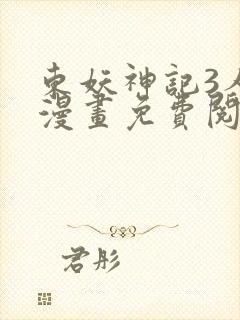 東妖神記3
漫畫免費閱
君彤